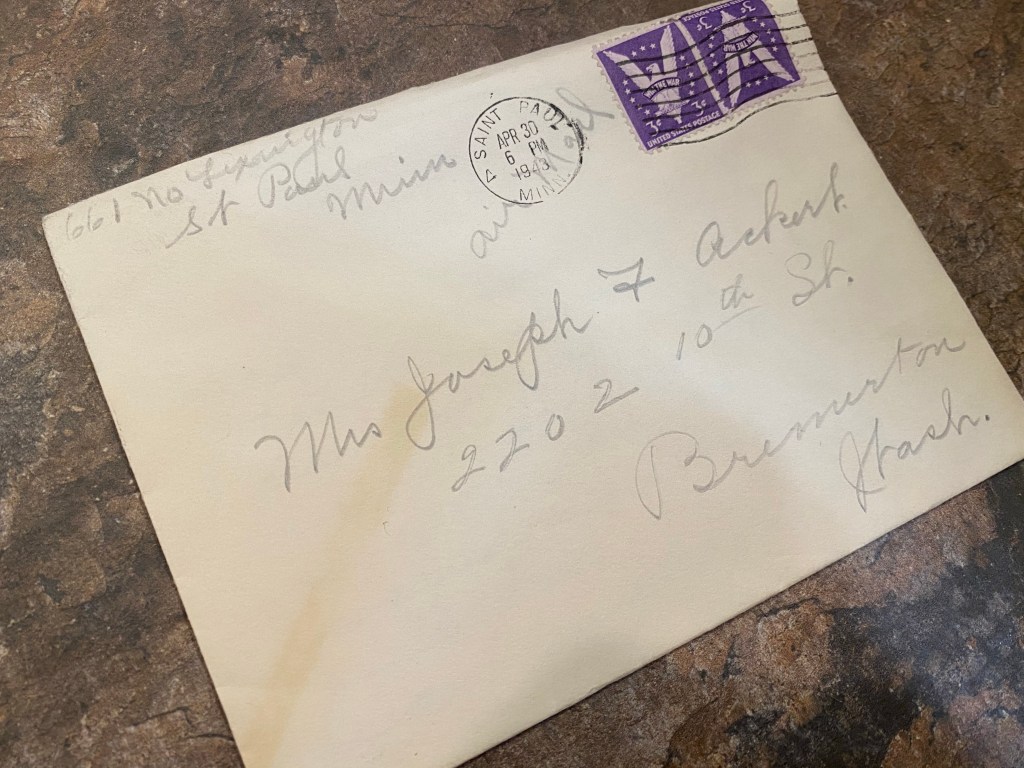 661 No Lexington
St Paul
Minn
SAINT PAUL
APR 30
6 PM
1943
MINN.
air mail
3¢ 3¢
WIN THE WAR
WIN THE WAR
3¢ 3¢
UNITED STATES POSTAGE
UNITED STATES POSTAGE
Mrs Joseph F Ackert
2202 10th St.
Bremerton
Wash.